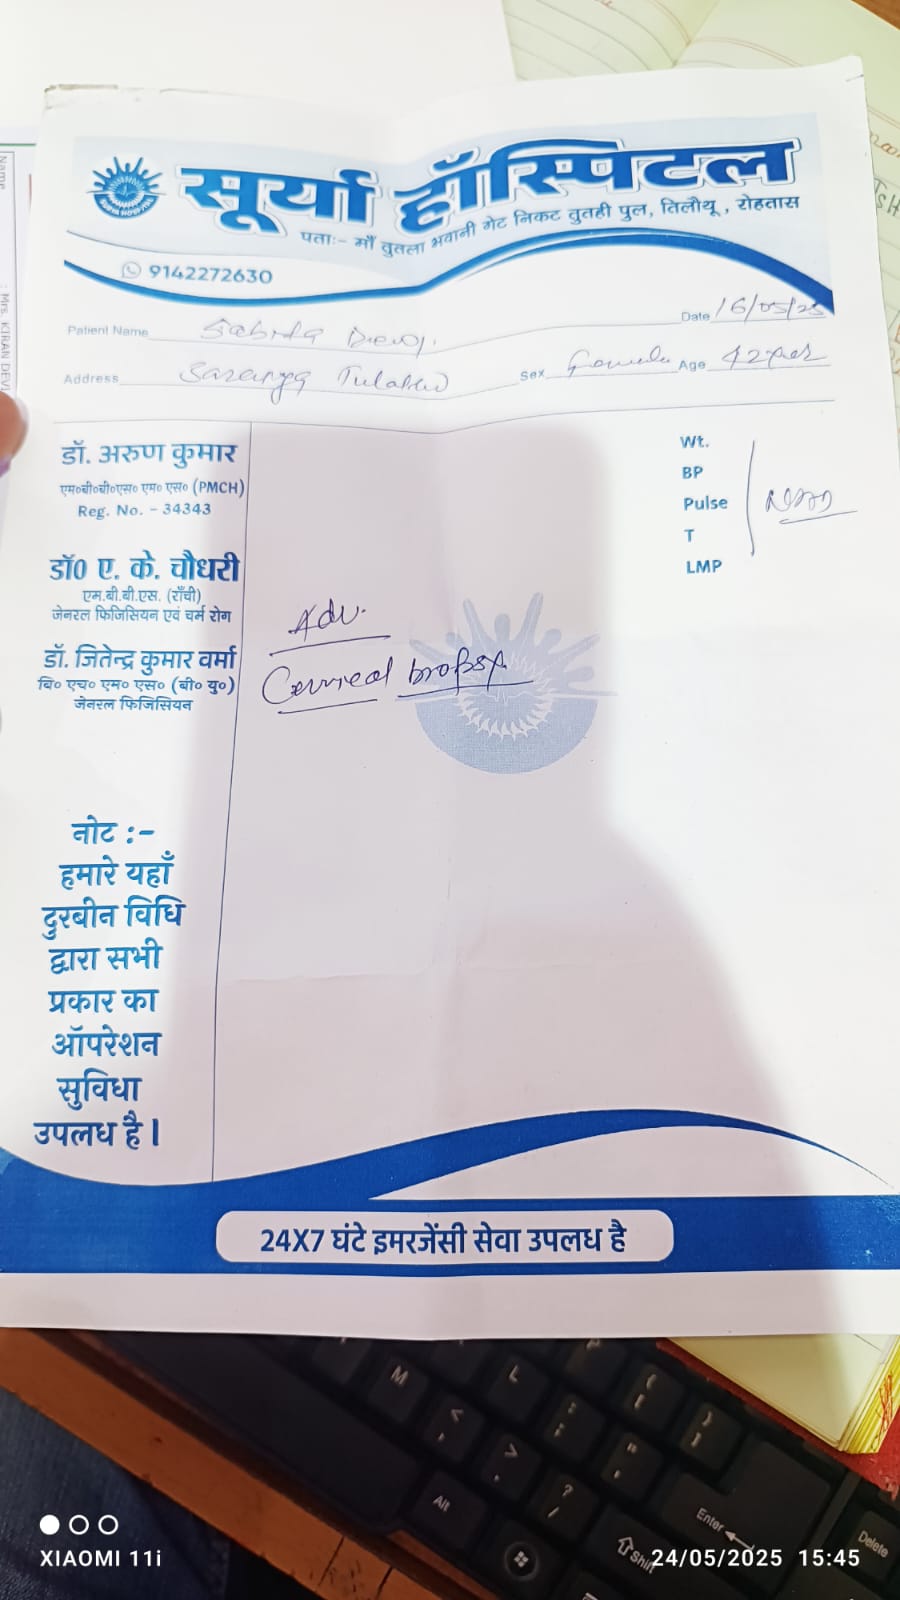 सूर्या हॉस्पिटल
पताः- माँ तुतला भवानी गेट निकट तुतही पुल, तिलौथू , रोहतास
9142272630
Date 16/05/25
Patient Name Devi.
Address Sex Female Age 42
डॉ. अरुण कुमार
एम०बी०बी०एस० एम० एस० (PMCH)
Reg. No. - 34343
डॉ0 ए. के. चौधरी
एम.बी.बी.एस. (राँची)
जेनरल फिजिसियन एवं चर्म रोग
डॉ. जितेन्द्र कुमार वर्मा
बि० एच० एम० एस० (बी० यु०)
जेनरल फिजिसियन
Wt.
BP
Pulse
T
LMP
Adv.
Cervical biopsy
नोट :-
हमारे यहाँ
दुरबीन विधि
द्वारा सभी
प्रकार का
ऑपरेशन
सुविधा
उपलध है।
24X7 घंटे इमरजेंसी सेवा उपलध है
Name : Mrs. KIRAN DEVI
M
L
Alt
Enter
Shift
Delete
XIAOMI 11i
24/05/2025 15:45